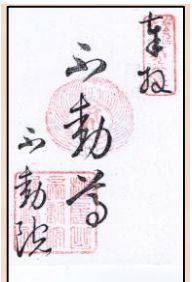 奉拝
不動尊
不動院